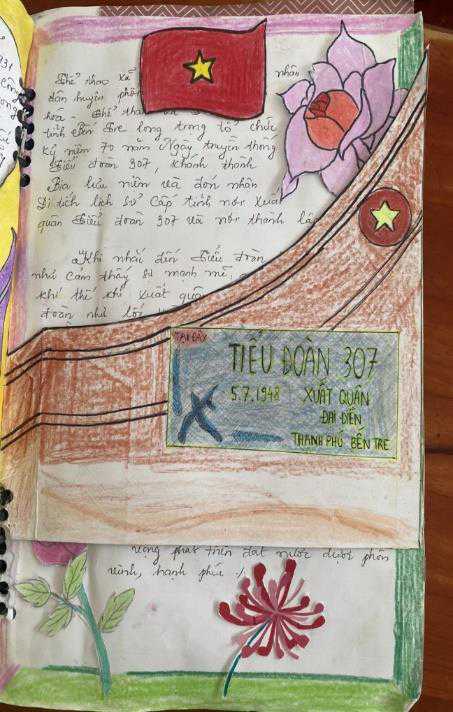 Thể thao và nhân
dân huyện phối
hoa - Thể thao
tỉnh Bến Tre long trọng tổ chức
kỷ niệm 70 năm Ngày truyền thống
Tiểu đoàn 307, khánh thành
Bia lưu niệm và đón nhận
Di tích lịch sử Cấp tỉnh nơi xuất
quân Tiểu đoàn 307 và nơi thành lậ
Khi nhắc đến Tiểu đoàn
như cảm thấy sự mạnh mẽ
khí thế khi xuất quân
đoàn như lời
TẠI ĐÂY
TIỂU ĐOÀN 307
5.7.1948 XUẤT QUÂN
ĐẠI ĐIỀN
THẠNH PHÚ BẾN TRE
vọng phát triển đất nước được phồn
vinh, hạnh phúc ./.